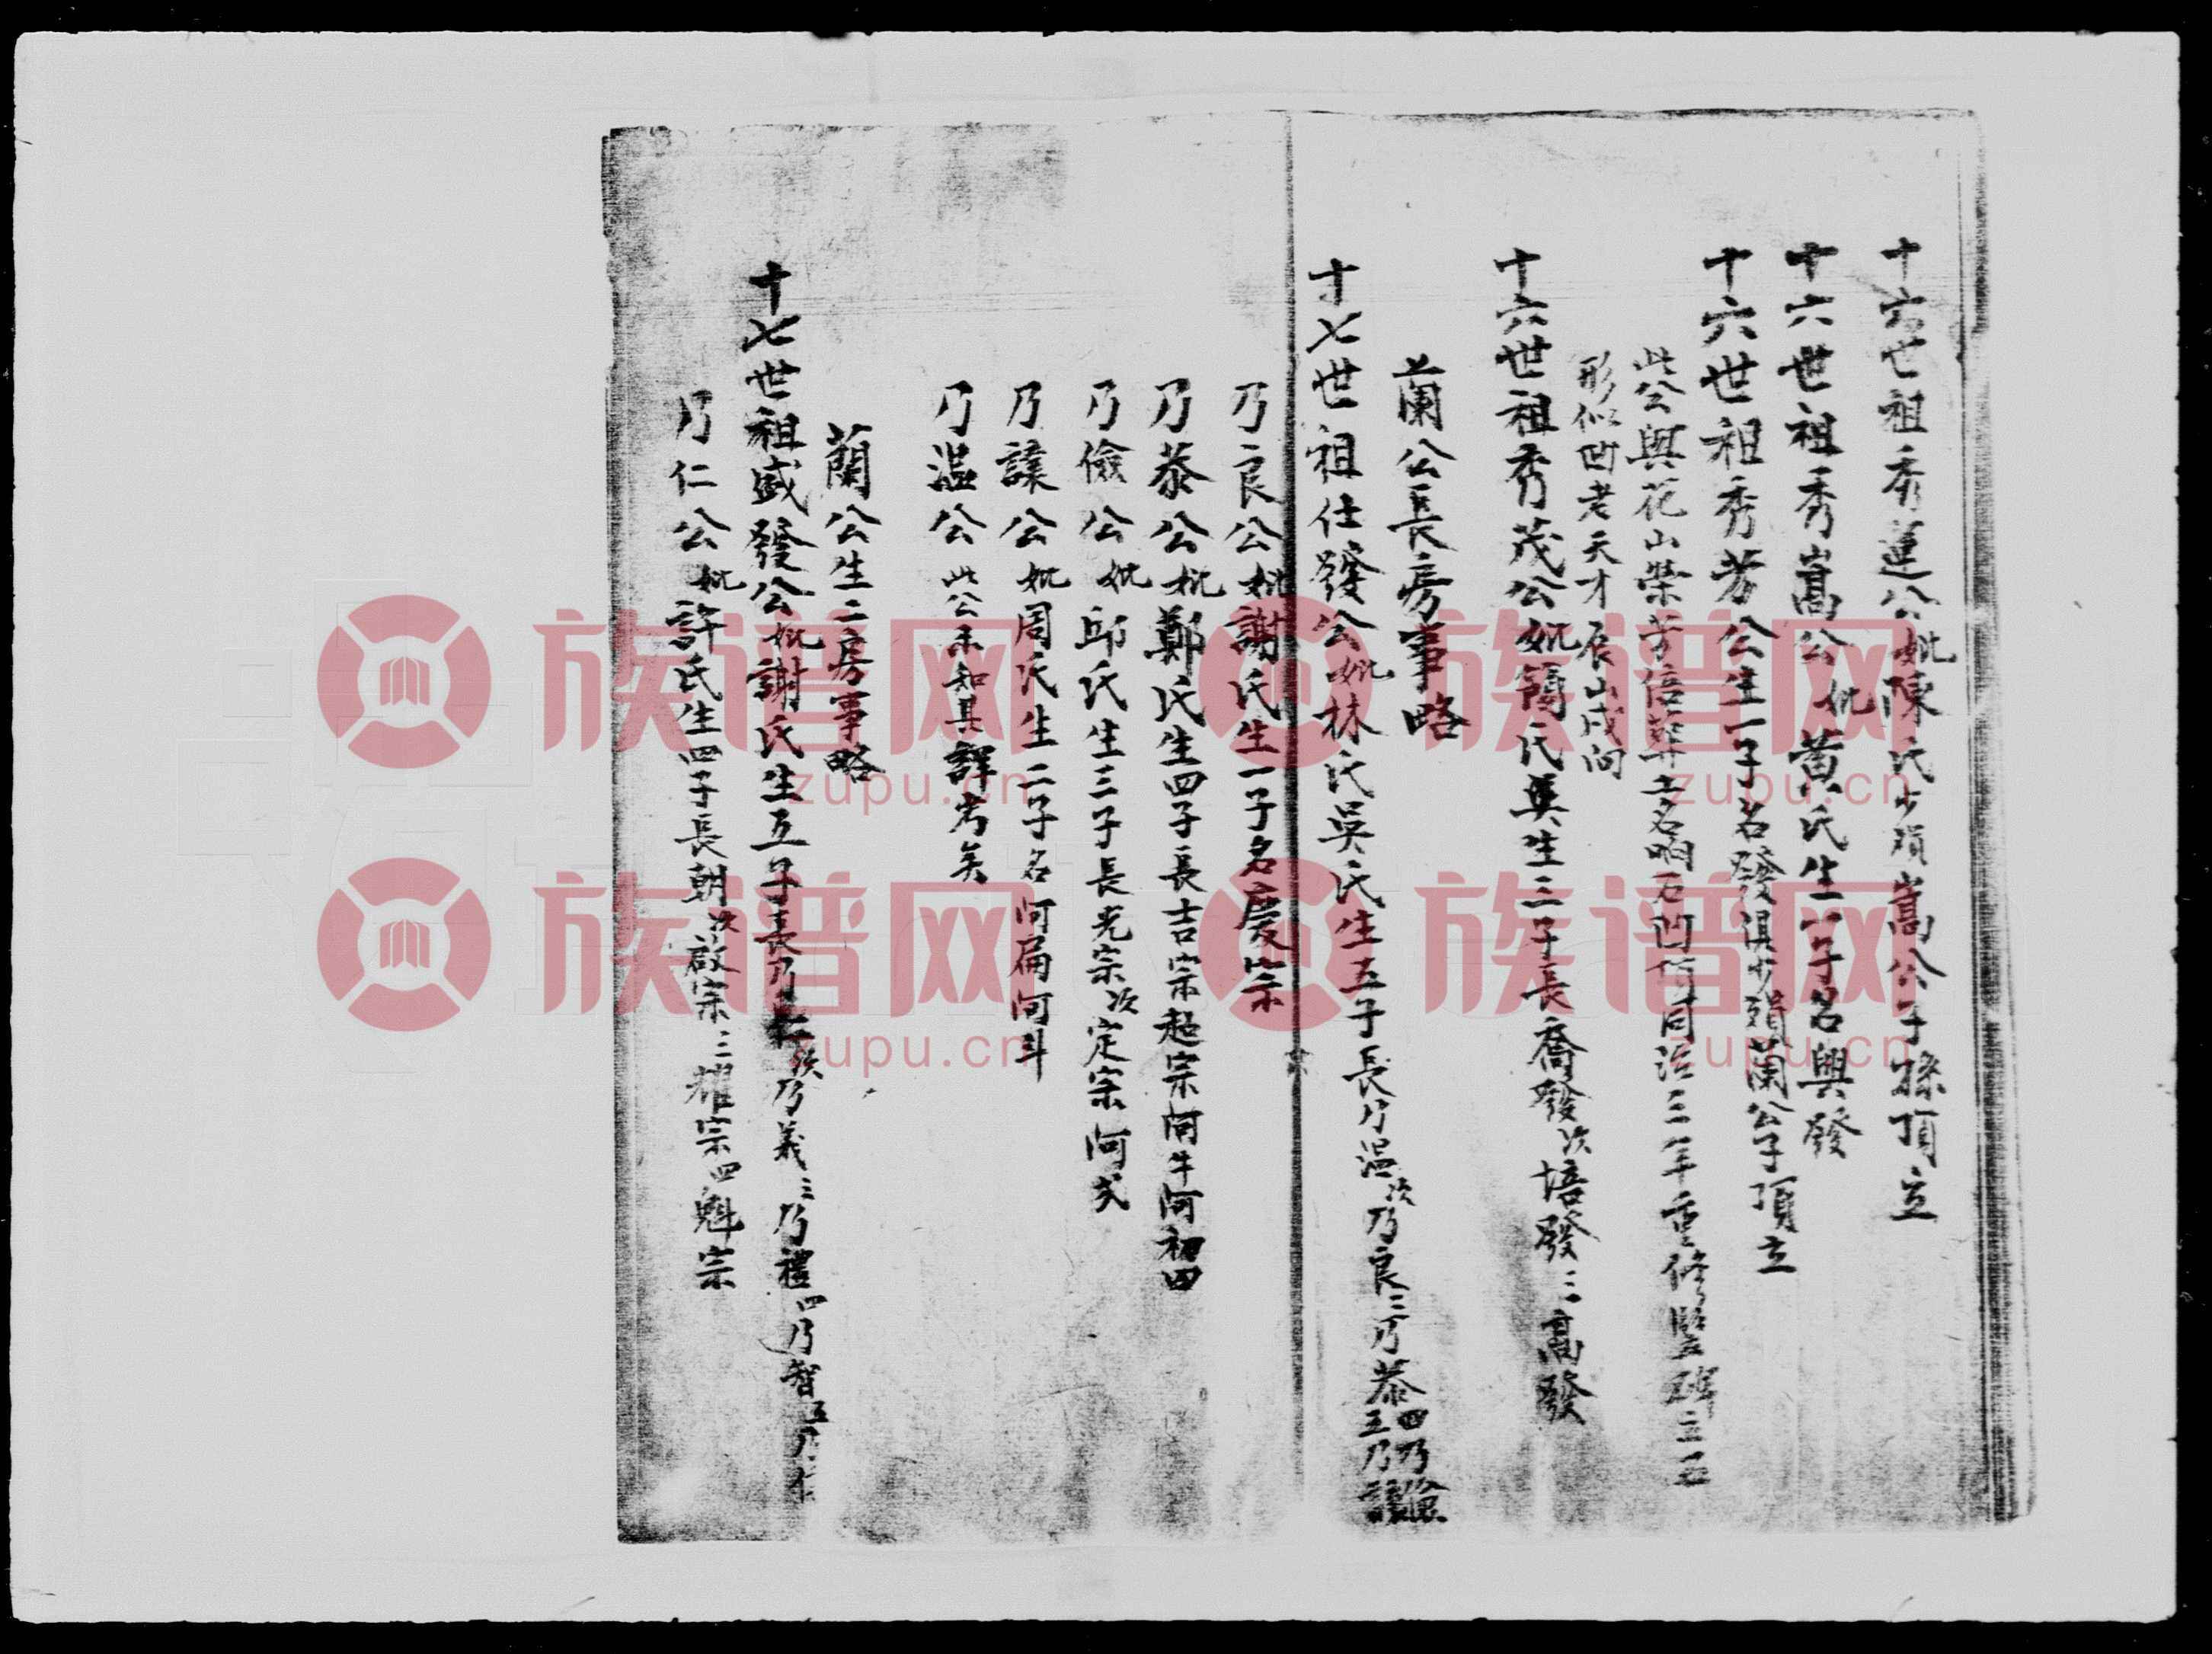 十六世祖秀蓮公妣陳氏少須嵩公子孫頂立
十六世祖秀嵩公妣黃氏生一子名興發
十六世祖秀芳公生一子名發俱少須蘭公子頂立
此公與花山榮芳倍葬土名石凹同治三年重修豎碑三五
形似凹老天才辰山戌向
十六世祖秀茂公妣簡氏吳生三子長喬發次培發三高發
蘭公長房事略
十七世祖仕發公妣林氏吳氏生五子長乃溫次乃良三乃恭四乃儉五乃讓
乃良公妣謝氏生一子名慶宗
乃恭公妣鄭氏生四子長吉宗超宗阿牛阿初四
乃儉公妣邱氏生三子長光宗次定宗阿
乃讓公妣周氏生二子名阿扁阿斗
乃溫公此公未知其詳考矣
蘭公生二房事略
十七世祖盛發公妣謝氏生五子長乃仁次乃義三乃禮四乃智五乃
乃仁公妣許氏生四子長朝次啟宗三耀宗四魁宗
族谱网
zupu.cn
族谱网
zupu.cn
族谱网
zupu.cn
族谱网
zupu.cn